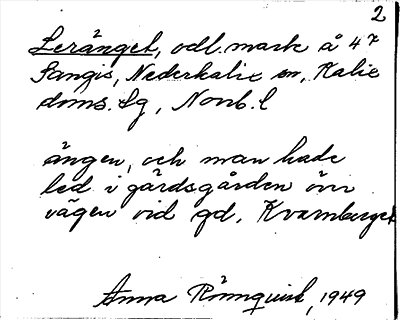 2
Leränget, odl. mark å 4⁷
Sangis, Nederkalix sn, Kalix
doms. lg, Norrb. l
ängen, och man hade
led i gärdsgården över
vägen vid gd. Kvarnberget
Anna Rönnquist, 1949